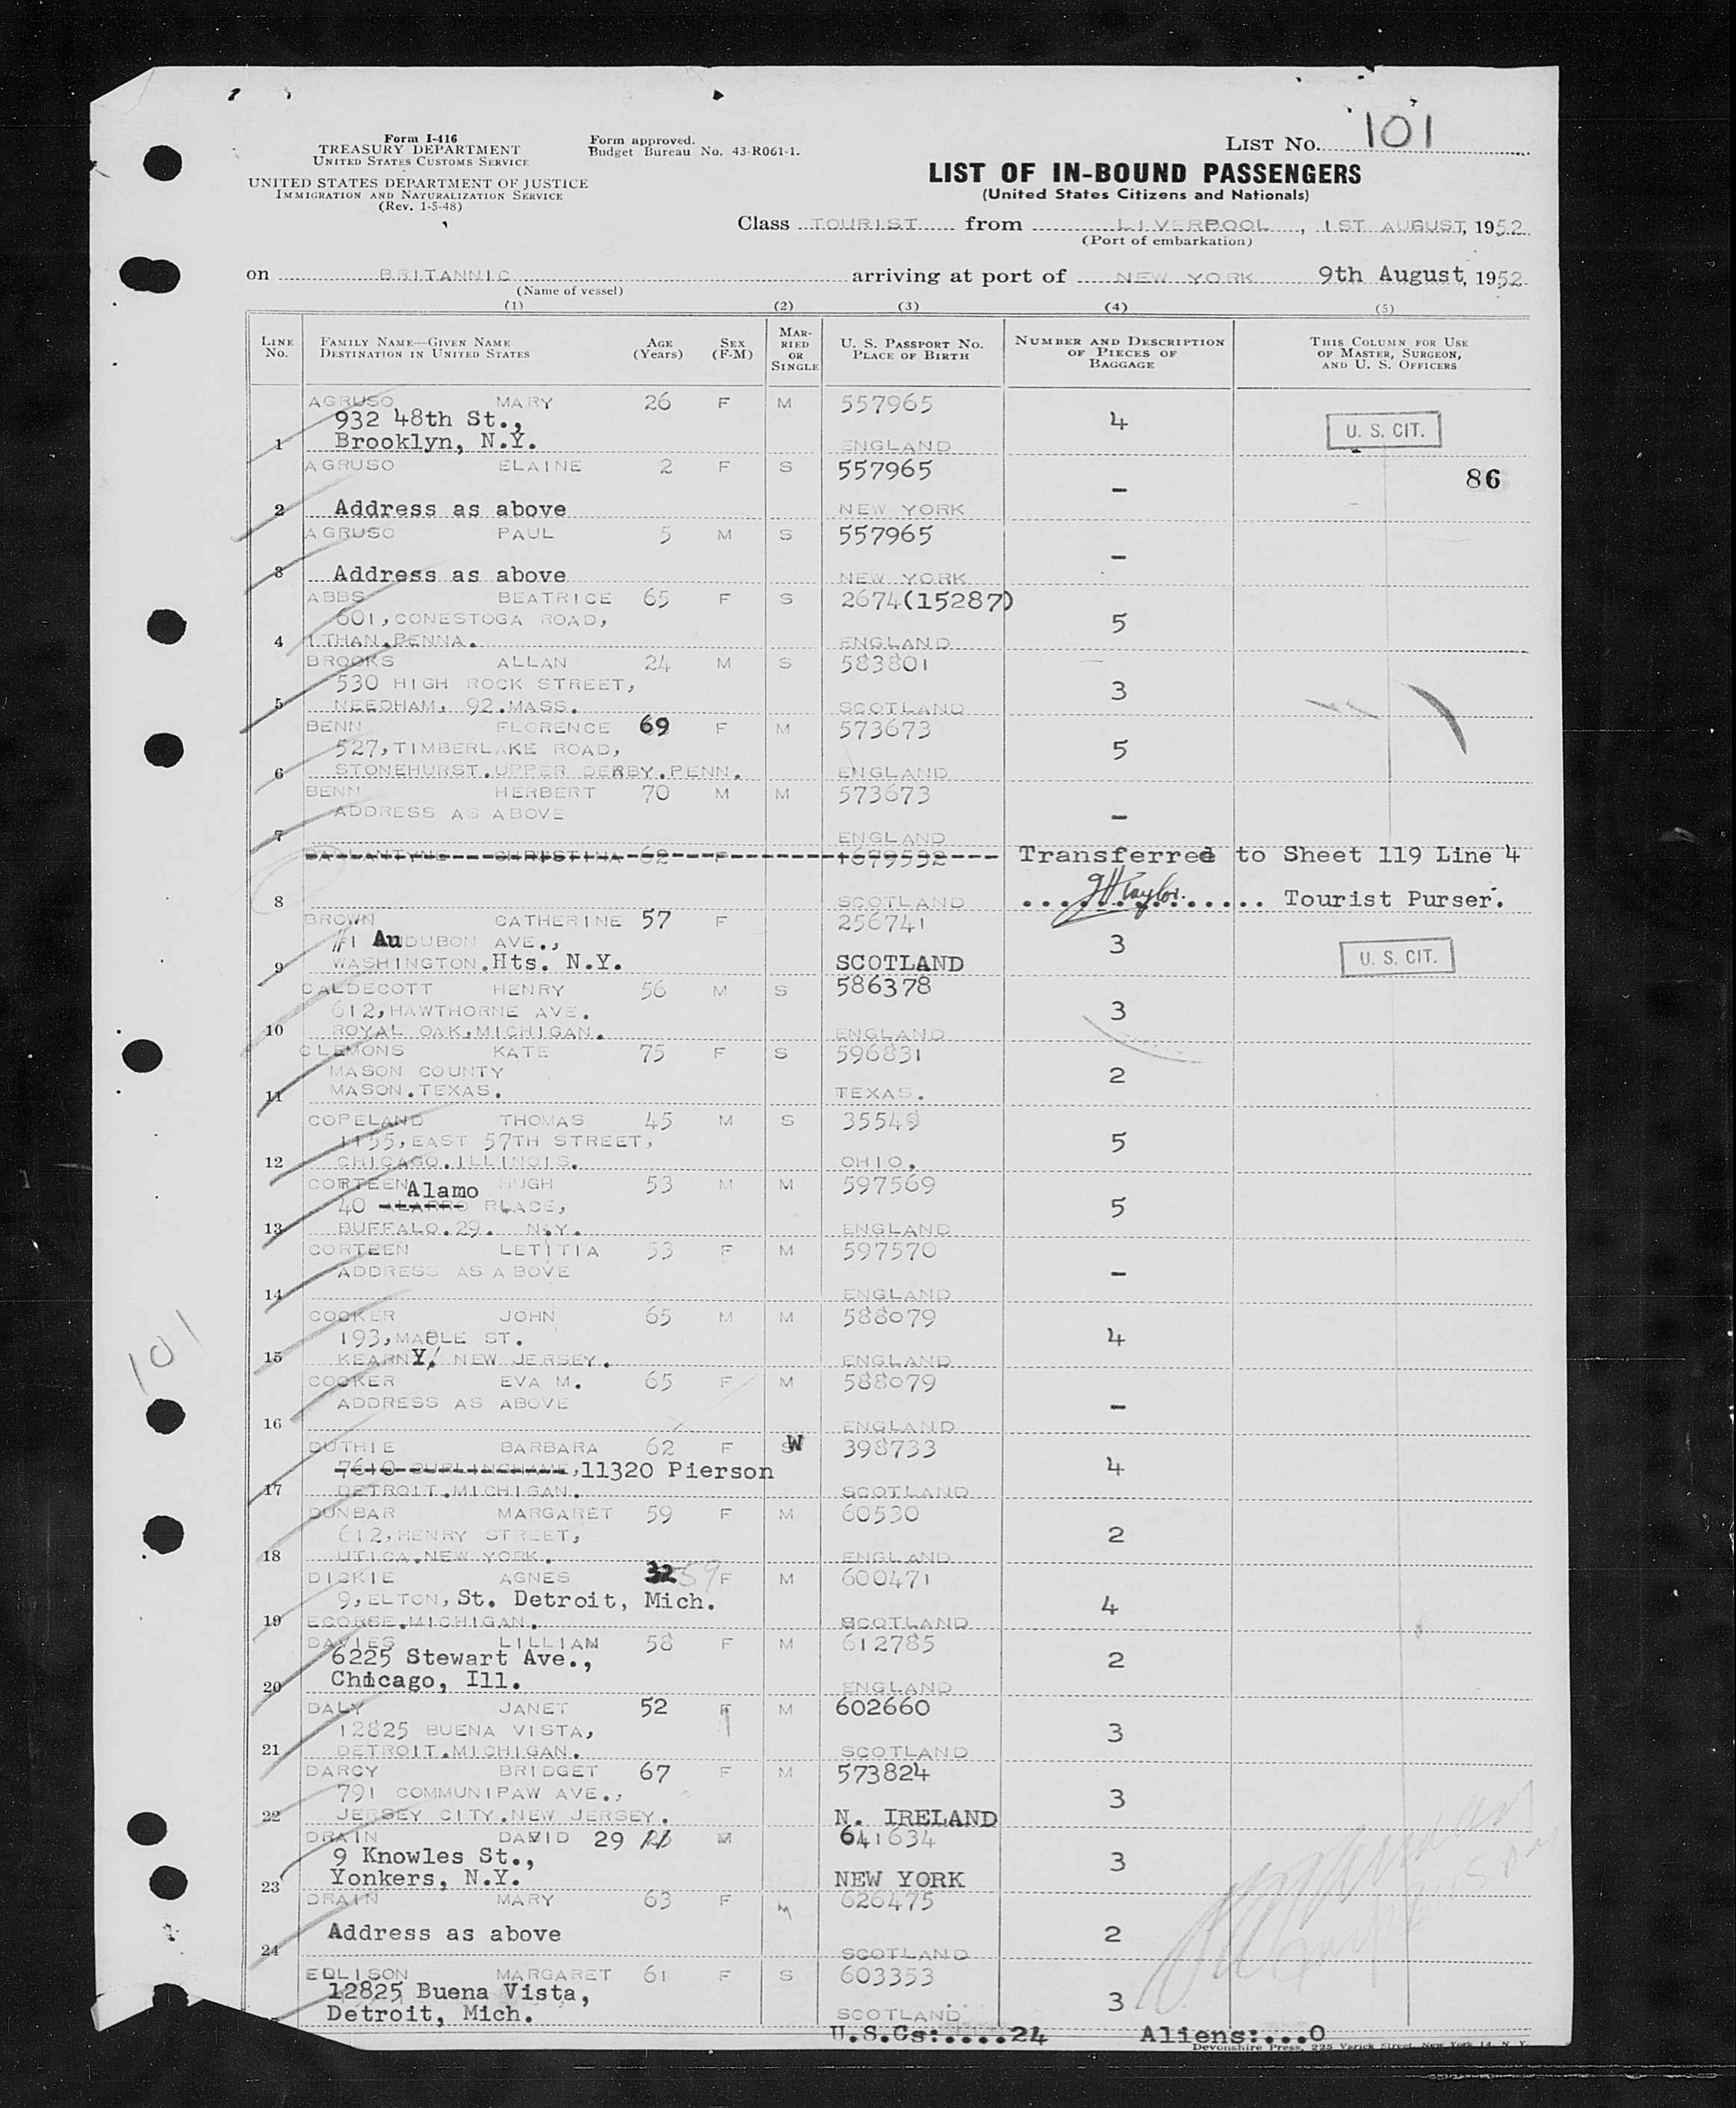 Form I-416
TREASURY DEPARTMENT
UNITED STATES CUSTOMS SERVICE
UNITED STATES DEPARTMENT OF JUSTICE
IMMIGRATION AND NATURALIZATION SERVICE
(Rev. 1-5-48)
Form approved.
Budget Bureau No. 43-R061-1.
LIST NO. 101
LIST OF IN-BOUND PASSENGERS
(United States Citizens and Nationals)
Class TOURIST from LIVERPOOL, 1ST AUGUST, 1952
(Port of embarkation)
on BRITANNIC arriving at port of NEW YORK 9th August, 1952
(Name of vessel)
(1) (2) (3) (4) (5)
LINE NO. FAMILY NAME—GIVEN NAME DESTINATION IN UNITED STATES AGE (Years) SEX (F-M) MARRIED OR SINGLE U. S. PASSPORT NO. PLACE OF BIRTH NUMBER AND DESCRIPTION OF PIECES OF BAGGAGE THIS COLUMN FOR USE OF MASTER, SURGEON, AND U. S. OFFICERS
AGRUSO MARY 26 F M 557965
932 48th St., 4 U. S. CIT.
1 Brooklyn, N.Y. ENGLAND
AGRUSO ELAINE 2 F S 557965 86
-
2 Address as above NEW YORK
AGRUSO PAUL 5 M S 557965
-
3 Address as above NEW YORK
ABBS BEATRICE 65 F S 2674(15287)
601, CONESTOGA ROAD, 5
4 ITHAN.PENNA. ENGLAND
BROOKS ALLAN 24 M S 583801
530 HIGH ROCK STREET, 3
5 NEEDHAM, 92.MASS. SCOTLAND
BENN FLORENCE 69 F M 573673
527, TIMBERLAKE ROAD, 5
6 STONEHURST.UPPER DERBY.PENN. ENGLAND
BENN HERBERT 70 M M 573673
ADDRESS AS ABOVE -
7 ENGLAND
BALLANTYNE CHRISTINA 62 F 1679592 Transferred to Sheet 119 Line 4
8 SCOTLAND JH Taylor. Tourist Purser.
BROWN CATHERINE 57 F 256741
#1 AuDUBON AVE., 3 U. S. CIT.
9 WASHINGTON.Hts. N.Y. SCOTLAND
CALDECOTT HENRY 56 M S 586378
612, HAWTHORNE AVE. 3
10 ROYAL OAK, MICHIGAN. ENGLAND
CLEMONS KATE 75 F S 596831
MASON COUNTY 2
11 MASON.TEXAS. TEXAS.
COPELAND THOMAS 45 M S 35549
1155, EAST 57TH STREET, 5
12 CHICAGO.ILLINOIS. OHIO.
CORTEEN HUGH 53 M M 597569
Alamo
40 PLACE, 5
13 BUFFALO.29. N.Y. ENGLAND
CORTEEN LETITIA 53 F M 597570
ADDRESS AS ABOVE -
14 ENGLAND
COOKER JOHN 65 M M 588079
193, MAPLE ST. 4
15 KEARNY, NEW JERSEY. ENGLAND
COOKER EVA M. 65 F M 588079
ADDRESS AS ABOVE -
16 ENGLAND
DUTHIE BARBARA 62 F S W 398733
7610 BURLINGHAME, 11320 Pierson 4
17 DETROIT.MICHIGAN. SCOTLAND
DUNBAR MARGARET 59 F M 60530
612, HENRY STREET, 2
18 UTICA.NEW YORK. ENGLAND
DICKIE AGNES 32 59 F M 600471
9, ELTON, St. Detroit, Mich. 4
19 ECORSE.MICHIGAN. SCOTLAND
DAVIES LILLIAN 58 F M 612785
6225 Stewart Ave., 2
20 Chicago, Ill. ENGLAND
DALY JANET 52 F M 602660
12825 BUENA VISTA, 3
21 DETROIT.MICHIGAN. SCOTLAND
DARCY BRIDGET 67 F M 573824
791 COMMUNIPAW AVE., 3
22 JERSEY CITY.NEW JERSEY. N. IRELAND
DRAIN DAVID 29 M 641634
9 Knowles St., 3
23 Yonkers, N.Y. NEW YORK
DRAIN MARY 63 F M 626475
Address as above 2
24 SCOTLAND
ELLISON MARGARET 61 F S 603353
12825 Buena Vista, 3
Detroit, Mich. SCOTLAND
U.S.Cs:....24 Aliens:...0
Devonshire Press, 225 Varick Street, New York 14, N. Y.
101